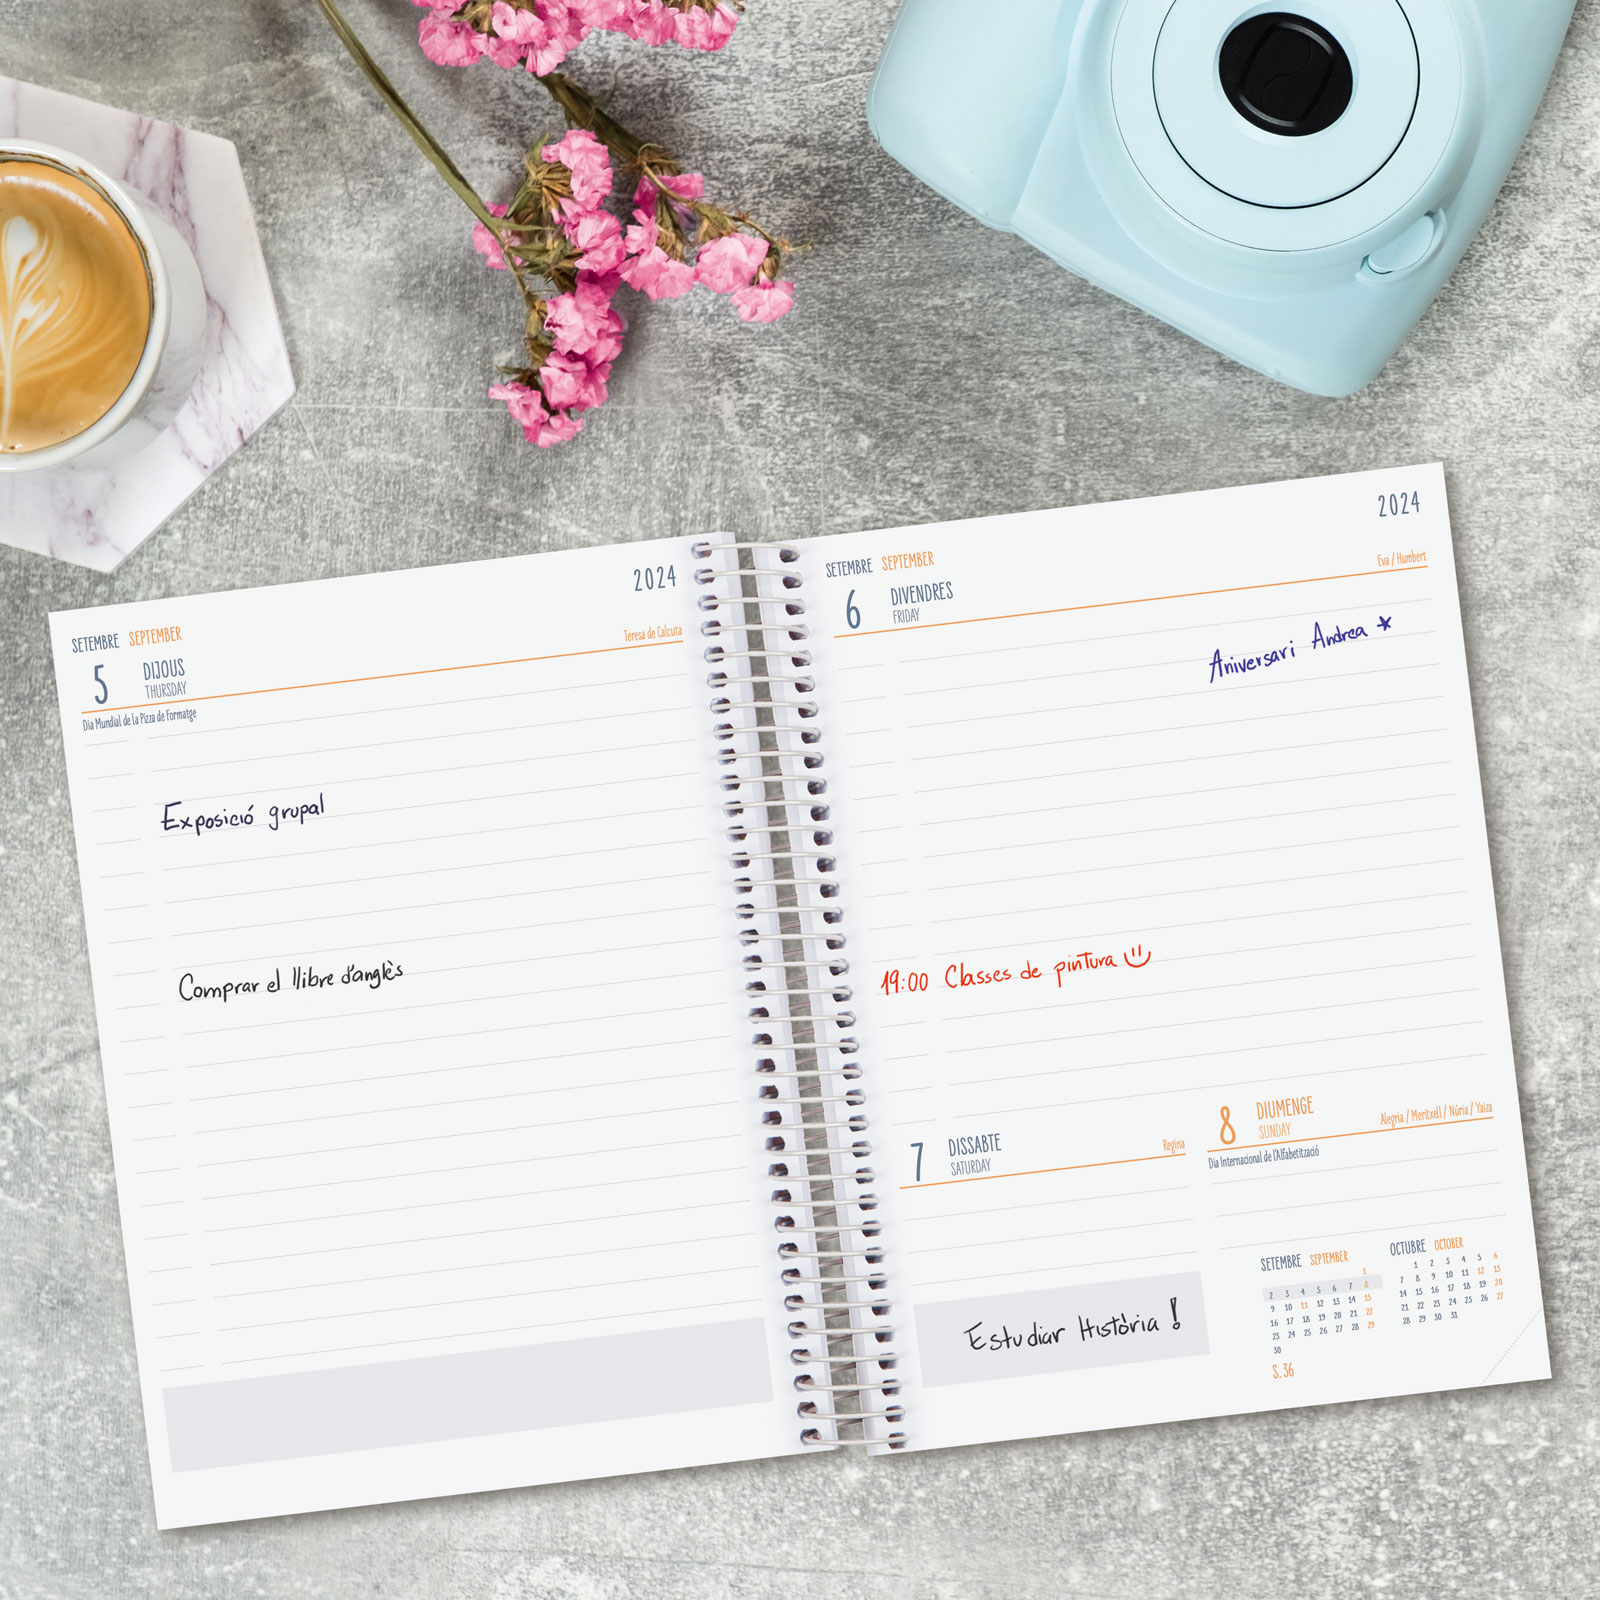 2024
SETEMBRE SEPTEMBER
5 DIJOUS
THURSDAY
Teresa de Calcuta
Dia Mundial de la Pizza de Formatge
Exposició grupal
Comprar el llibre d'anglès
2024
SETEMBRE SEPTEMBER
6 DIVENDRES
FRIDAY
Eva / Humbert
Aniversari Andrea
19:00 Classes de pintura
7 DISSABTE
SATURDAY
Regina
Estudiar Història !
8 DIUMENGE
SUNDAY
Alegria / Meritxell / Núria / Yaiza
Dia Internacional de l'Alfabetització
SETEMBRE SEPTEMBER
1
2 3 4 5 6 7 8
9 10 11 12 13 14 15
16 17 18 19 20 21 22
23 24 25 26 27 28 29
30
S. 36
OCTUBRE OCTOBER
1 2 3 4 5 6
7 8 9 10 11 12 13
14 15 16 17 18 19 20
21 22 23 24 25 26 27
28 29 30 31